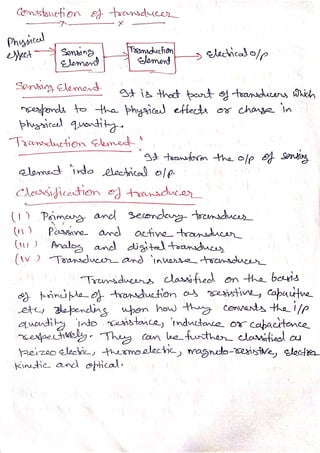 Construction of transducer
Physical effect → Sensing Element → Transduction Element → Electrical o/p
Sensing Element
It is that part of transducers which
responds to the physical effects or change in
physical quantity.
Transduction Element:
It transform the o/p of sensing
element into electrical o/p.
Classification of transducer
(I) Primary and secondary transducer
(II) Passive and active transducer
(III) Analog and digital transducer
(IV) Transducer and inverse transducer
Transducers classified on the basis
of principle of transduction as resistive, capacitive
etc, depending upon how they converts the i/p
quantity into resistance, inductance or capacitance
respectively. They can be further classified as
Peizeo electric, thermoelectic, magneto-resistive, electro
kinetic and optical.